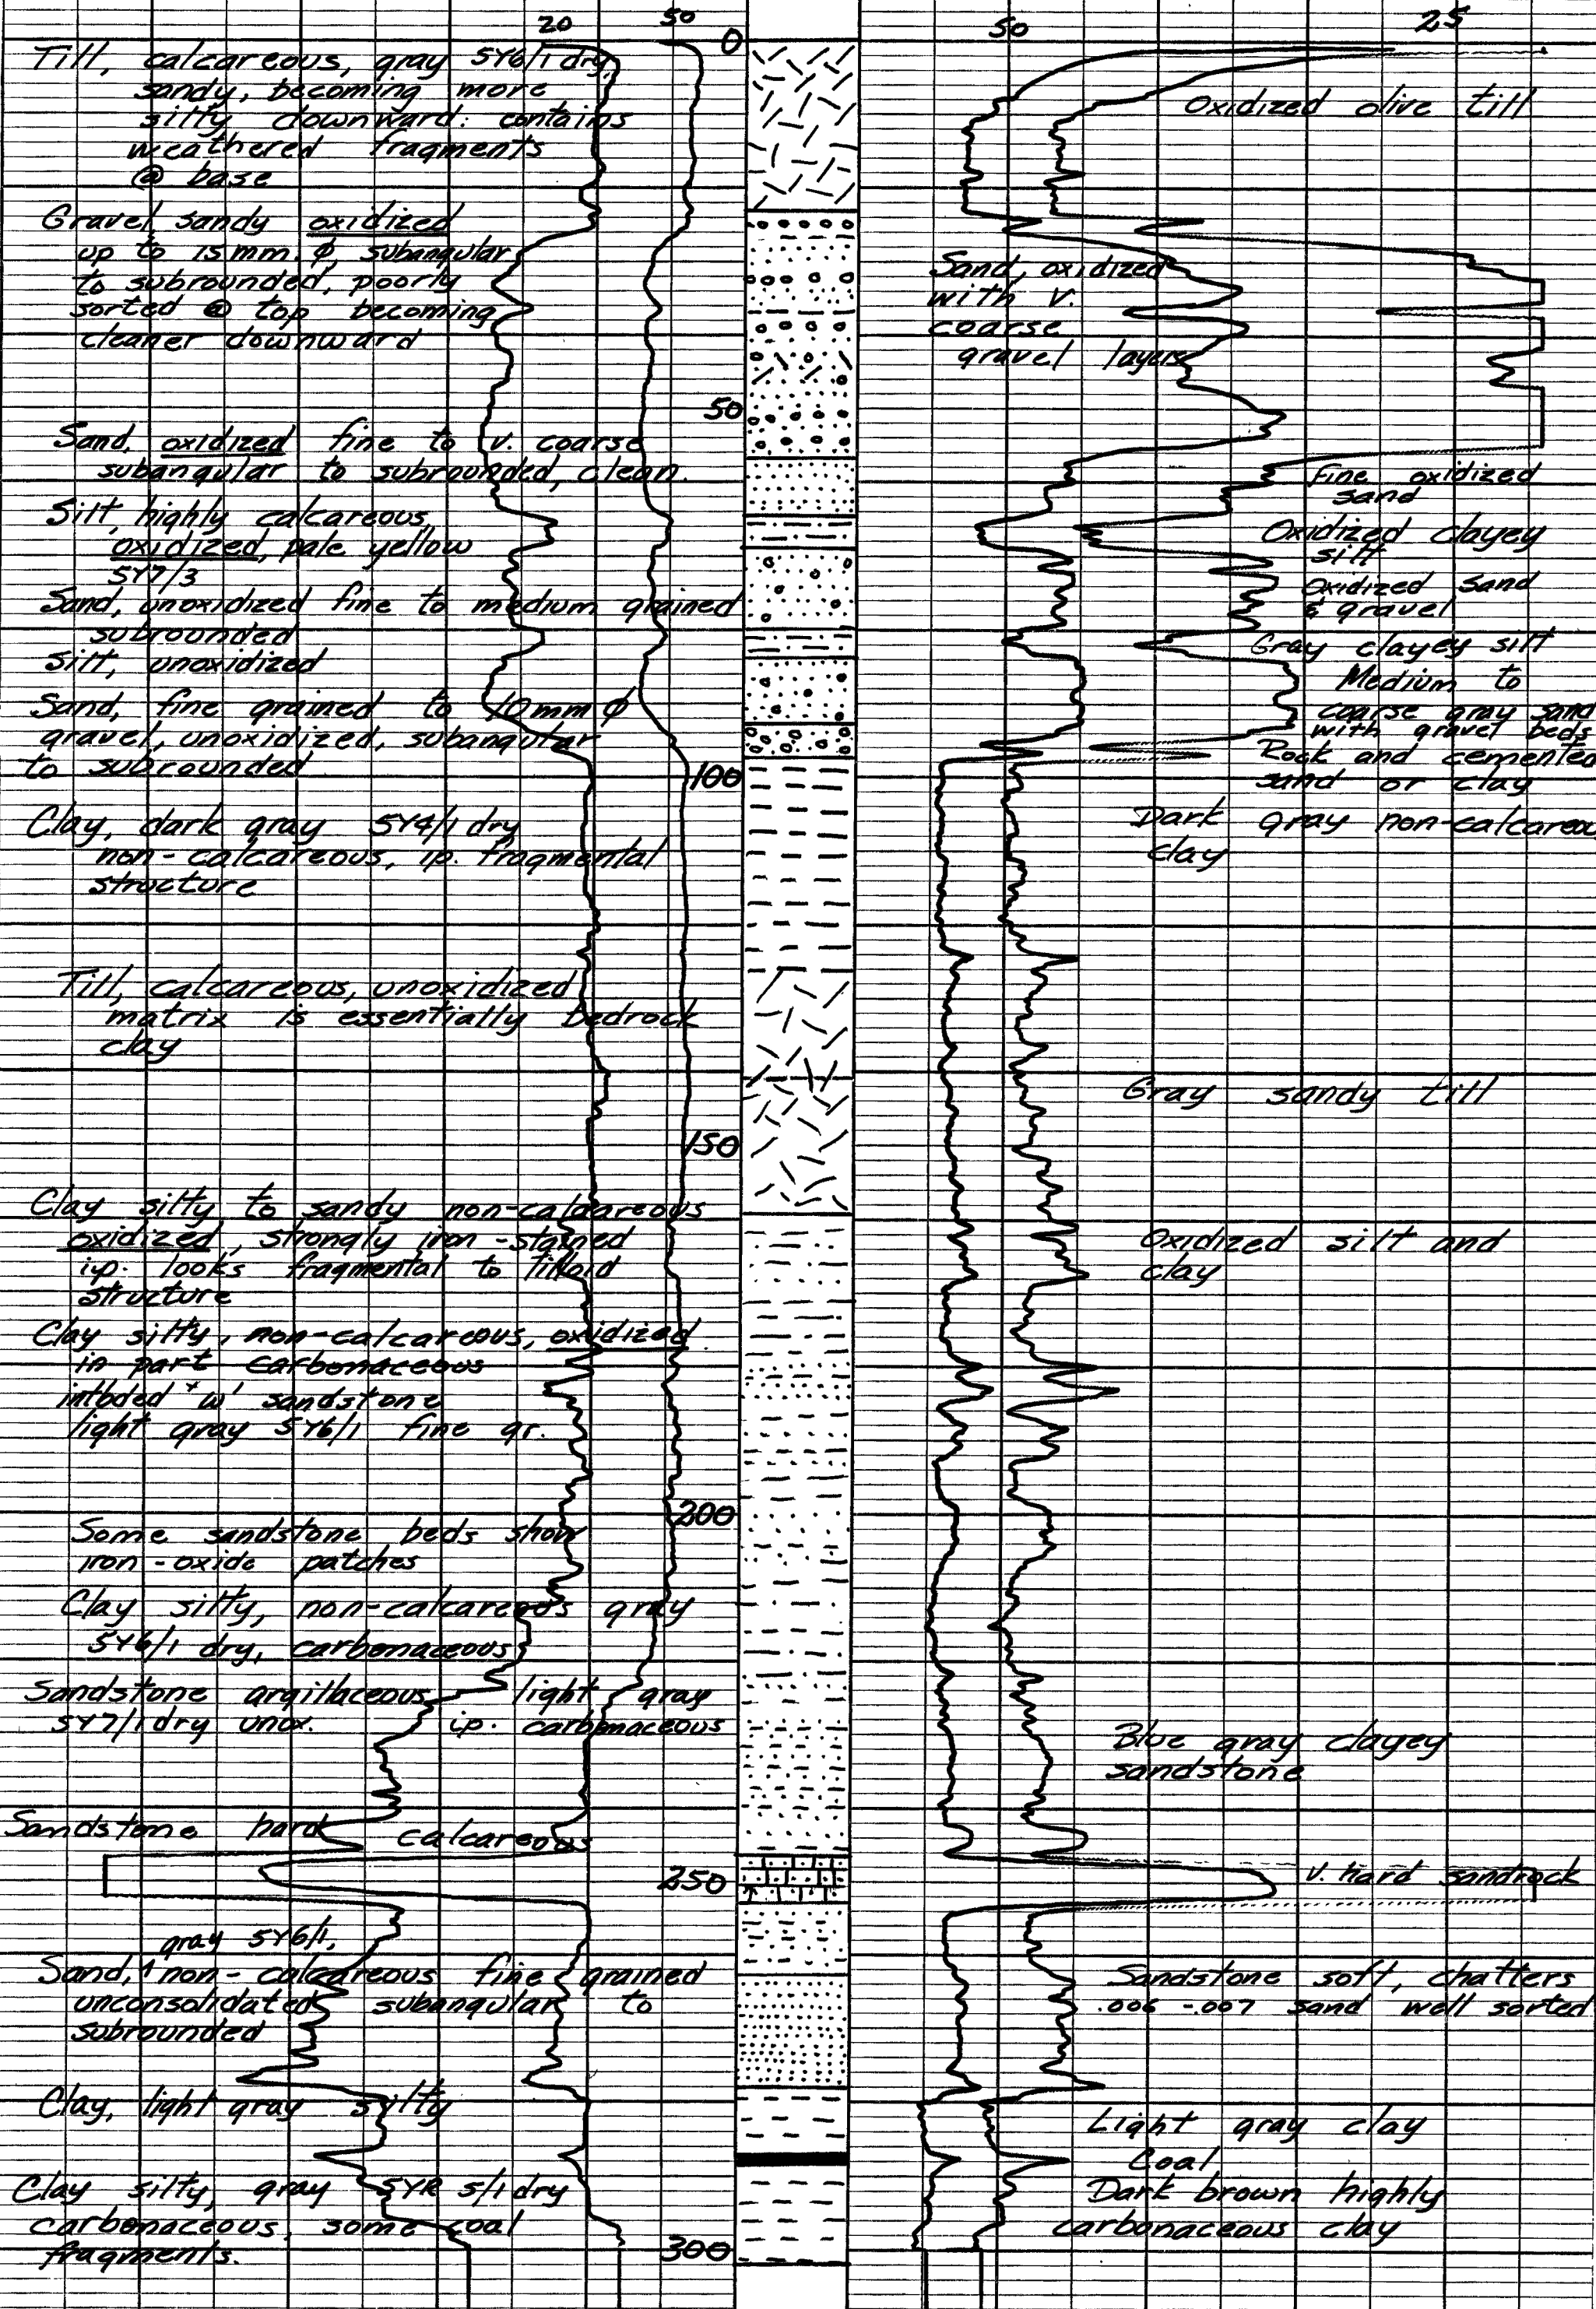 20 50 0 50 25
Till, calcareous, gray 5Y6/1 dry,
sandy, becoming more
silty downward: contains
weathered fragments
@ base
Gravel sandy oxidized
up to 15 mm. φ, subangular
to subrounded, poorly
sorted @ top becoming
cleaner downward
Sand, oxidized fine to v. coarse
subangular to subrounded, clean.
Silt, highly calcareous,
oxidized, pale yellow
5Y7/3
Sand, unoxidized fine to medium grained
subrounded
Silt, unoxidized
Sand, fine grained to 10mm φ
gravel, unoxidized, subangular
to subrounded
Clay, dark gray 5Y4/1 dry
non-calcareous, ip. fragmental
structure
Till, calcareous, unoxidized
matrix is essentially bedrock
clay
Clay silty to sandy non-calcareous
oxidized, strongly iron-stained
ip. looks fragmental to tilloid
structure
Clay silty, non-calcareous, oxidized
in part carbonaceous
intbded w' sandstone
light gray 5Y6/1 fine gr.
Some sandstone beds show
iron-oxide patches
Clay silty, non-calcareous gray
5Y6/1 dry, carbonaceous
Sandstone argillaceous light gray
5Y7/1 dry unox. ip. carbonaceous
Sandstone hard calcareous
gray 5Y6/1,
Sand, non-calcareous fine grained
unconsolidated subangular to
subrounded
Clay, light gray silty
Clay silty, gray 5YR 5/1 dry
carbonaceous, some coal
fragments.
50
100
150
200
250
300
Oxidized olive till
Sand, oxidized
with v.
coarse
gravel layers
Fine oxidized
sand
Oxidized clayey
silt
Oxidized sand
& gravel
Gray clayey silt
Medium to
coarse gray sand
with gravel beds
Rock and cemented
sand or clay
Dark gray non-calcareou
clay
Gray sandy till
Oxidized silt and
clay
Blue gray clayey
sandstone
V. hard sandrock
Sandstone soft, chatters
.006 -.007 sand well sorted
Light gray clay
Coal
Dark brown highly
carbonaceous clay